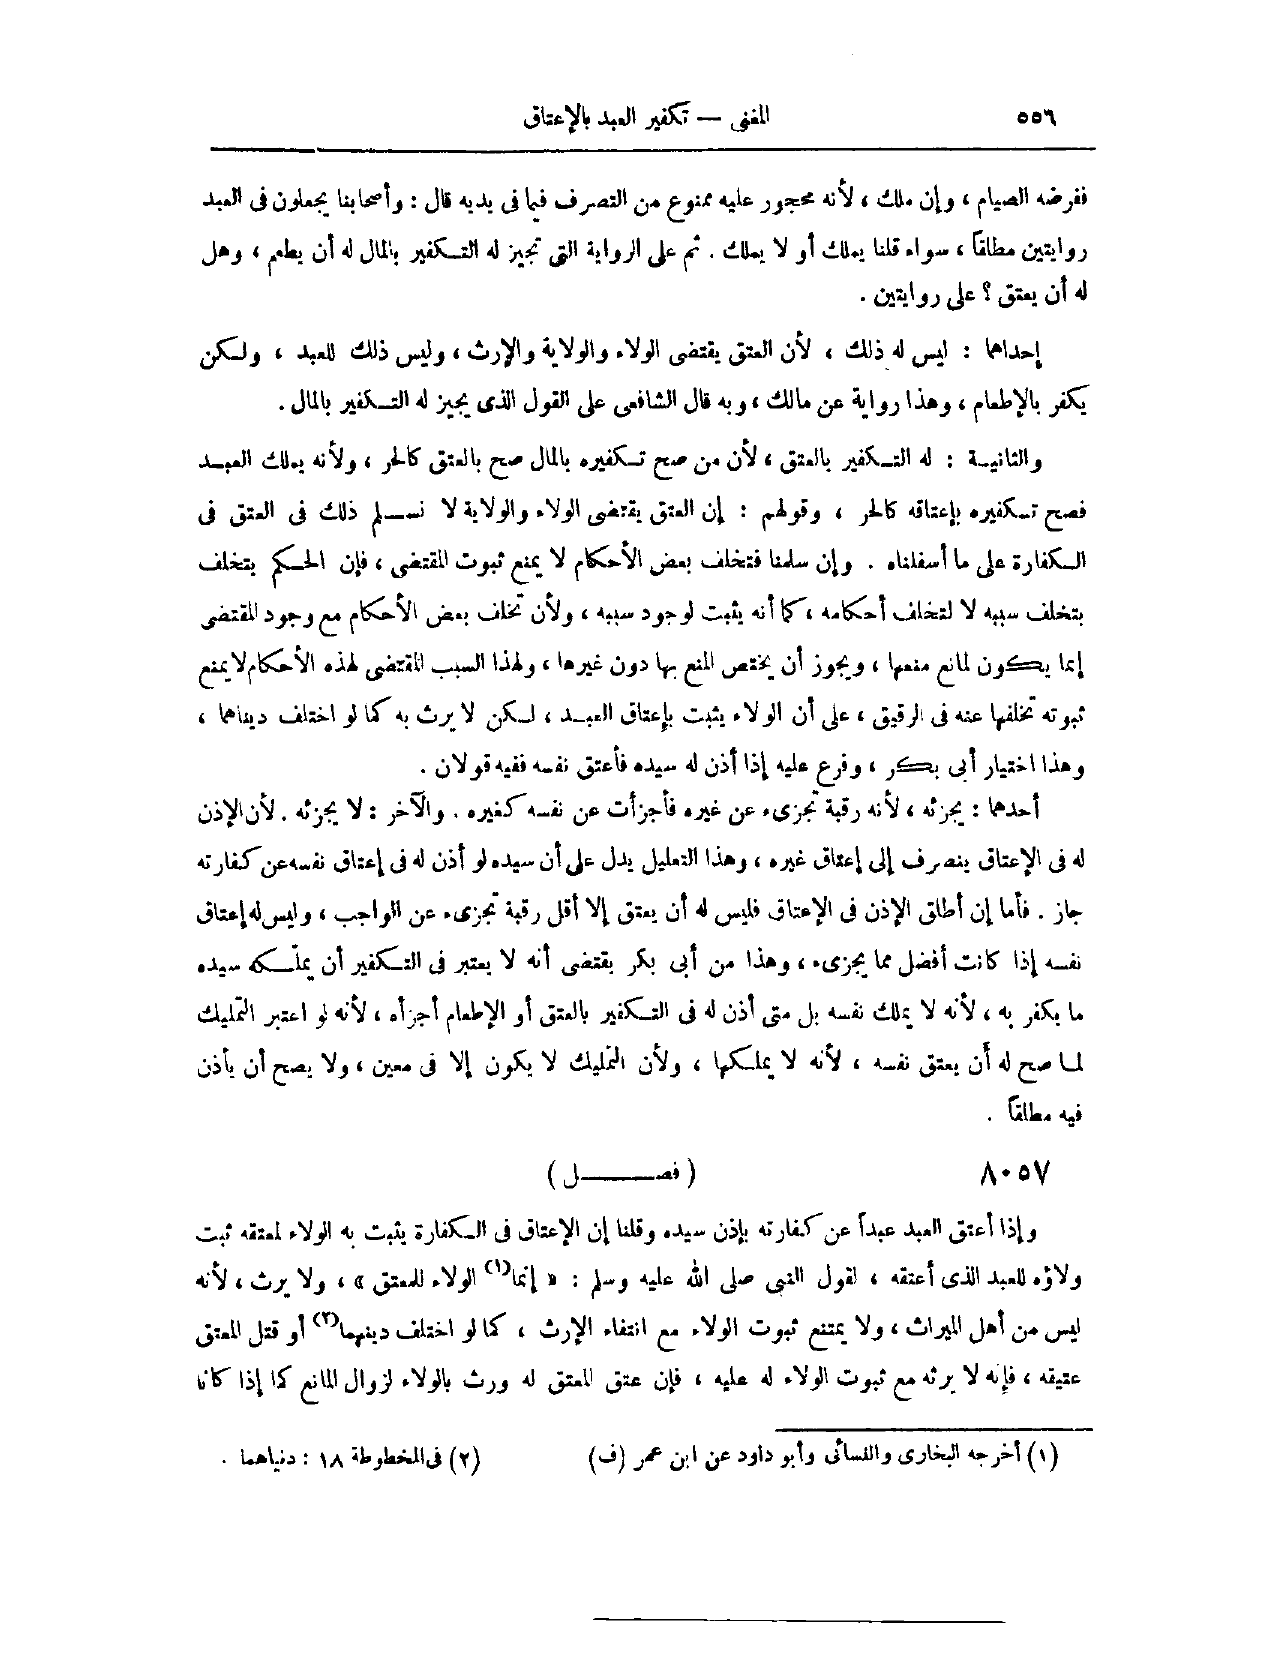 ٥٥٦
المغنى — تكفير العبد بالإعتاق
ففرضه الصيام ، وإن ملك ، لأنه محجور عليه ممنوع من التصرف فيما فى يديه قال : وأصحابنا يجعلون فى العبد
روايتين مطلقاً ، سواء قلنا يملك أو لا يملك . ثم على الرواية التى تجيز له التكفير بالمال له أن يطعم ، وهل
له أن يعتق ؟ على روايتين .
إحداها : ليس له ذلك ، لأن العتق يقتضى الولاء والولاية والإرث ، وليس ذلك للعبد ، ولكن
يكفر بالإطعام ، وهذا رواية عن مالك ، وبه قال الشافعى على القول الذى يجيز له التكفير بالمال .
والثانية : له التكفير بالعتق ، لأن من صح تكفيره بالمال صح بالعتق كالحر ، ولأنه يملك العبد
فصح تكفيره بإعتاقه كالحر ، وقولهم : إن العتق يقتضى الولاء والولاية لا نسلم ذلك فى العتق فى
الكفارة على ما أسفلناه . وإن سلمنا فتخلف بعض الأحكام لا يمنع ثبوت المقتضى ، فإن الحكم يتخلف
بتخلف سببه لا لتخلف أحكامه ، كما أنه يثبت لوجود سببه ، ولأن تخلف بعض الأحكام مع وجود المقتضى
إنما يكون لمانع منعها ، ويجوز أن يختص المنع بها دون غيرها ، ولهذا السبب المقتضى لهذه الأحكام لا يمنع
ثبوته تخلفها عنه فى الرقيق ، على أن الولاء يثبت بإعتاق العبد ، لكن لا يرث به كما لو اختلف ديناهما ،
وهذا اختيار أبى بكر ، وفرع عليه إذا أذن له سيده فأعتق نفسه ففيه قولان .
أحدها : يجزئه ، لأنه رقبة تجزىء عن غيره فأجزأت عن نفسه كغيره . والآخر : لا يجزئه . لأن الإذن
له فى الإعتاق ينصرف إلى إعتاق غيره ، وهذا التعليل يدل على أن سيده لو أذن له فى إعتاق نفسه عن كفارته
جاز . فأما إن أطلق الإذن فى الإعتاق فليس له أن يعتق إلا أقل رقبة تجزىء عن الواجب ، وليس له إعتاق
نفسه إذا كانت أفضل مما يجزىء ، وهذا من أبى بكر يقتضى أنه لا يعتبر فى التكفير أن يملّكه سيده
ما يكفر به ، لأنه لا يملك نفسه بل متى أذن له فى التكفير بالعتق أو الإطعام أجزأه ، لأنه لو اعتبر التمليك
لما صح له أن يعتق نفسه ، لأنه لا يملكها ، ولأن التمليك لا يكون إلا فى معين ، ولا يصح أن يأذن
فيه مطلقاً .
٨٠٥٧ ( فصل )
وإذا أعتق العبد عبداً عن كفارته بإذن سيده وقلنا إن الإعتاق فى الكفارة يثبت به الولاء لمعتقه ثبت
ولاؤه للعبد الذى أعتقه ، لقول النبى صلى الله عليه وسلم : « إنما(١) الولاء للمعتق » ، ولا يرث ، لأنه
ليس من أهل الميراث ، ولا يمتنع ثبوت الولاء مع انتفاء الإرث ، كما لو اختلف دينهما(٢) أو قتل المعتق
عتيقه ، فإنه لا يرثه مع ثبوت الولاء له عليه ، فإن عتق المعتق له ورث بالولاء لزوال المانع كما إذا كانا
(١) أخرجه البخارى والنسائى وأبو داود عن ابن عمر (ف) (٢) فى المخطوطة ١٨ : دنياهما .